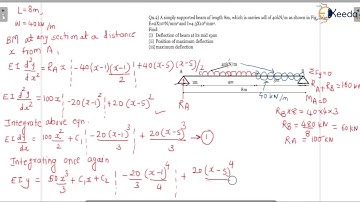 Keeda
L=8m,
W = 40kN/m
BM at any section at a distance
x from A,
EI d²y/dx² = RA x | -40(x-1)(x-1)/2 | +40(x-5)(x-5)/2
EI d²y/dx² = 100x | -20(x-1)² | +20(x-5)²
Integrate above eqn.
EI dy/dx = 100x²/2 + C1 | -20(x-1)³/3 | +20(x-5)³/3 → 1
Integrating once again
EI y = 50x³/3 + C1x + C2 | -20/3 (x-1)⁴/4 | +20(x-5)⁴
Qu.4) A simply supported beam of length 8m, which is carries udl of 40kN/m as shown in
Find
(i) Deflection of beam at its mid span
(ii) Position of maximum deflection
(iii) maximum deflection
A
B
8m
40 kN/m
RA
ΣFy=0
RA+RB=160kN
MA=0
RB×8 = 40×4×3
RB = 480/8 kN = 60kN
RA = 100kN